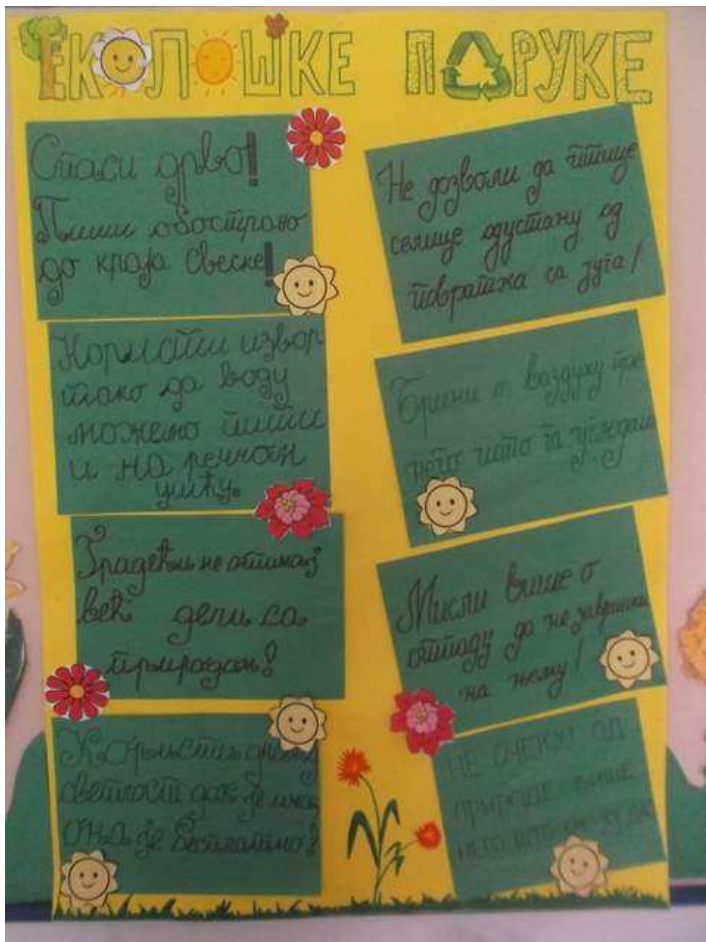 ЕКОЛОШКЕ ПОРУКЕ
Спаси дрво!
Пиши обострано
до краја свеске!
Користи извор
тако да воду
можемо пити
и на речном
ушћу.
Градећи не отимај
већ дели са
природом!
Користи дневну
светлост док је има
она је бесплатна!
Не дозволи да птице
селице одустану од
повратка са југа!
Брини о ваздуху пре
него што га угледаш
Мисли више о
отпаду да не завршиш
на њему!
НЕ ОЧЕКУЈ ОД
ПРИРОДЕ ВИШЕ
НЕГО ШТО